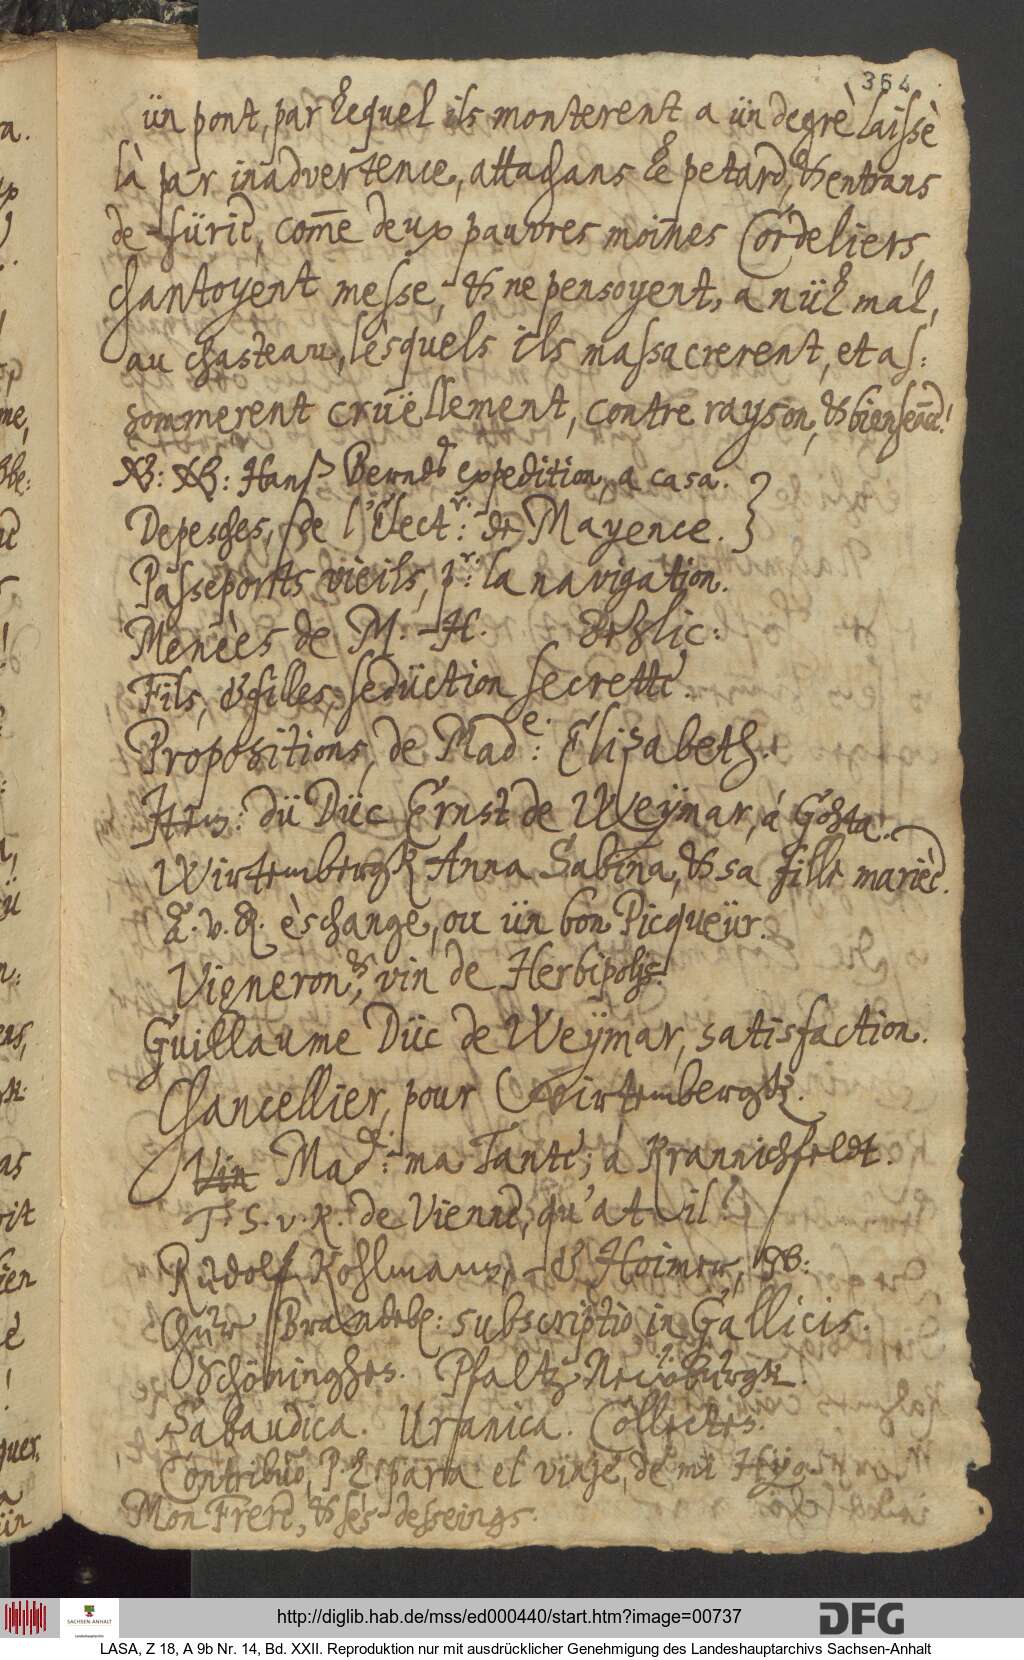 364
ün pont, par lequel ils monterent a ün degrè laissè
là par inadvertence, attachans le petard, & entrans
de furie, com̃e deux pauvres moines Cordeliers,
chantoyent messe, & ne pensoyent, a nül mal,
au chasteau, lesquels ils massacrerent, et as=
sommerent cruëllement, contre rayson, & bienseãce!
NB: NB: Hanß Berndts expedition, a casa.
Depesches, de l'Elect.r: de Mayence.
Passeports vieils, p.r: la navigation.
Menèes de M. H.
Fils, & filles, seduction secrette.
Propositions, de Mad.e: Elisabeth.
du Düc Ernst de Weymar, á Gohta.
Wirtembergk Anna Sabina, & sa fille marièe.
L. v. R. èschange, ou ün bon Picqueür.
Vigneron, & vin de Herbipolis.
Guillaume Düc de Weymar, satisfaction.
Chancellier, pour Wirtembergk.
Vin Mad.e: ma Tante, a Krannichfeldt.
T. S. v. K. de Vienne, qu'a t il?
Rudolf Kohlmann, & Hoimer, NB:
Chur Brandebl: subscriptio in Gallicis.
Schöninghes. Pfaltz Neüburgk.
Sabaudica. Uranica. Collectes.
Contribuo, p. L. para el viaje, de mi Hijo
Mon Frere, & ses desseings.
SACHSEN-ANHALT
Landeshauptarchiv
http://diglib.hab.de/mss/ed000440/start.htm?image=00737
DFG
LASA, Z 18, A 9b Nr. 14, Bd. XXII. Reproduktion nur mit ausdrücklicher Genehmigung des Landeshauptarchivs Sachsen-Anhalt